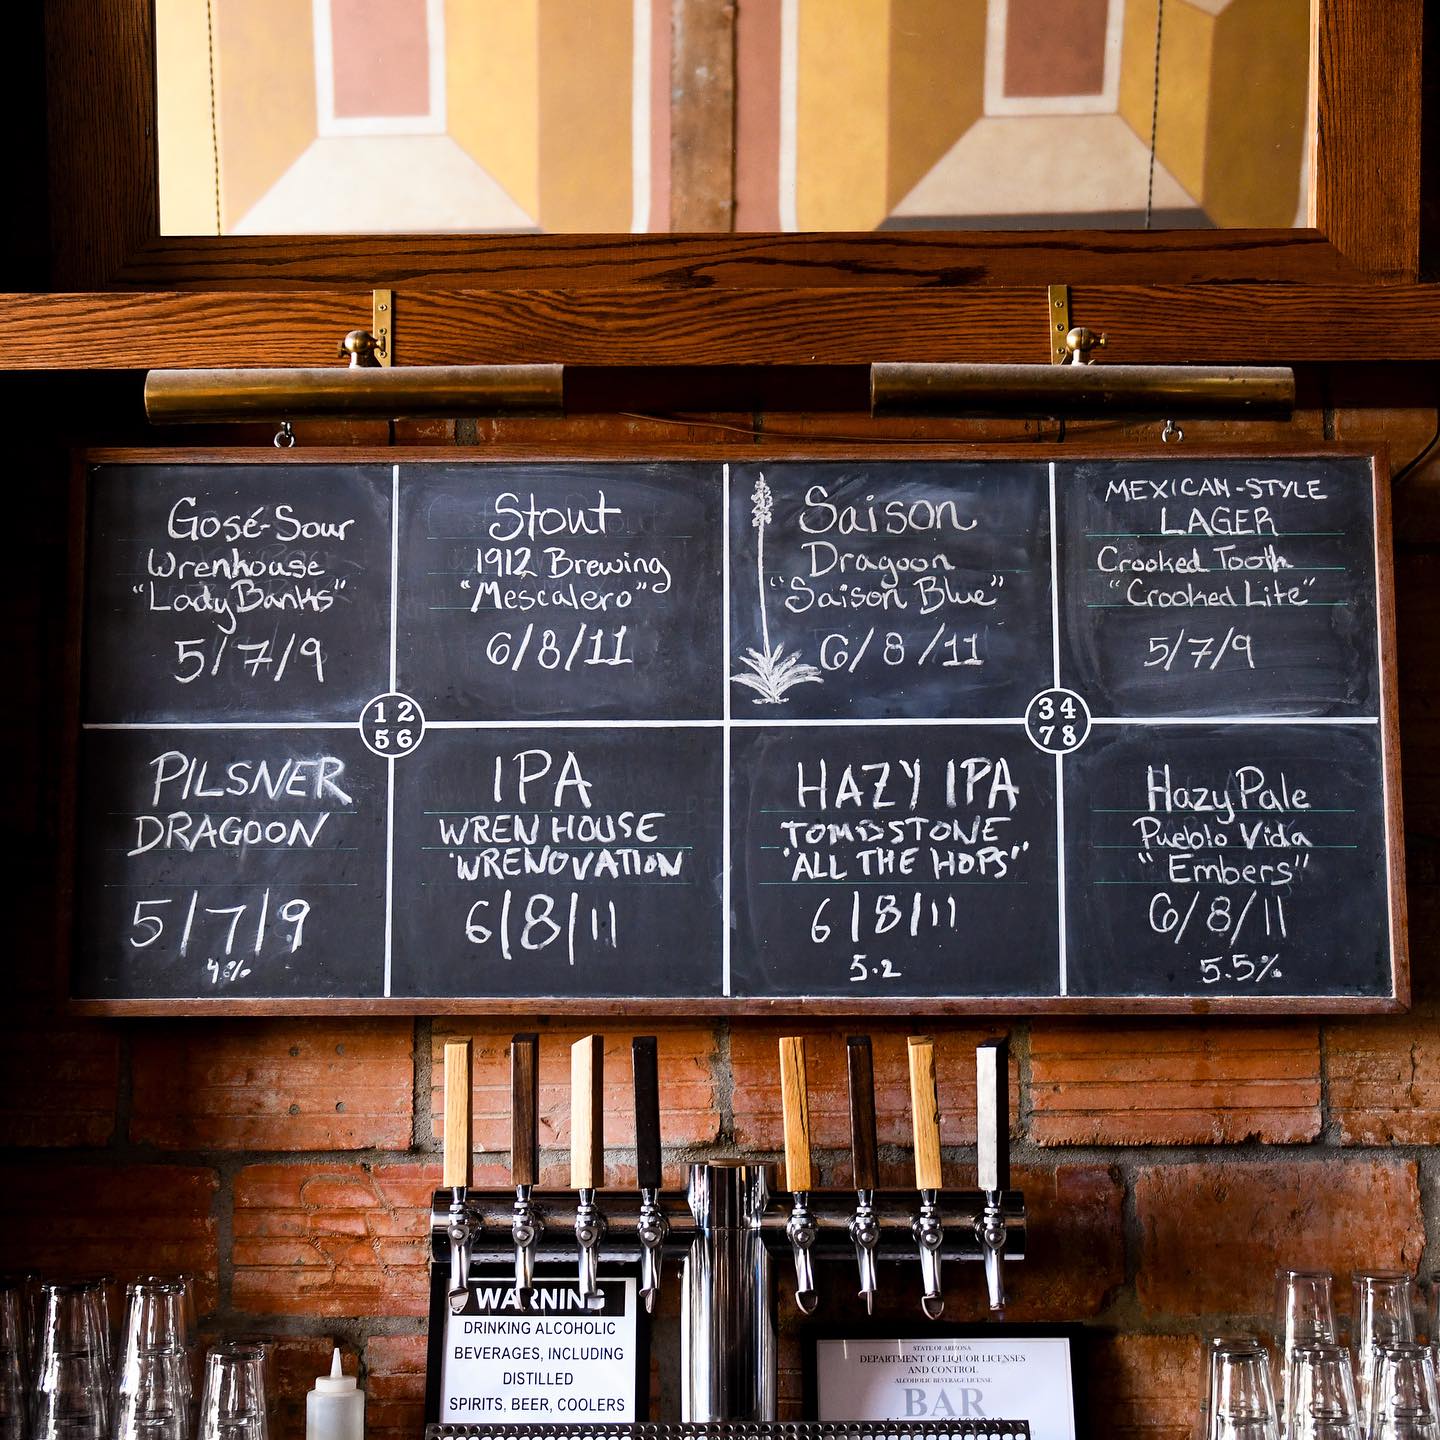 Gosé-Sour
Wrenhouse
"Lady Banks"
5/7/9
Stout
1912 Brewing
"Mescalero"
6/8/11
Saison
Dragoon
"Saison Blue"
6/8/11
MEXICAN-STYLE
LAGER
Crooked Tooth
"Crooked Lite"
5/7/9
1 2
5 6
3 4
7 8
PILSNER
DRAGOON
5/7/9
4%
IPA
WREN HOUSE
"WRENOVATION
6/8/11
HAZY IPA
TOMBSTONE
"ALL THE HOPS"
6/8/11
5.2
Hazy Pale
Pueblo Vida
"Embers"
6/8/11
5.5%
WARNING
DRINKING ALCOHOLIC
BEVERAGES, INCLUDING
DISTILLED
SPIRITS, BEER, COOLERS
STATE OF ARIZONA
DEPARTMENT OF LIQUOR LICENSES
AND CONTROL
ALCOHOLIC BEVERAGE LICENSE
BAR